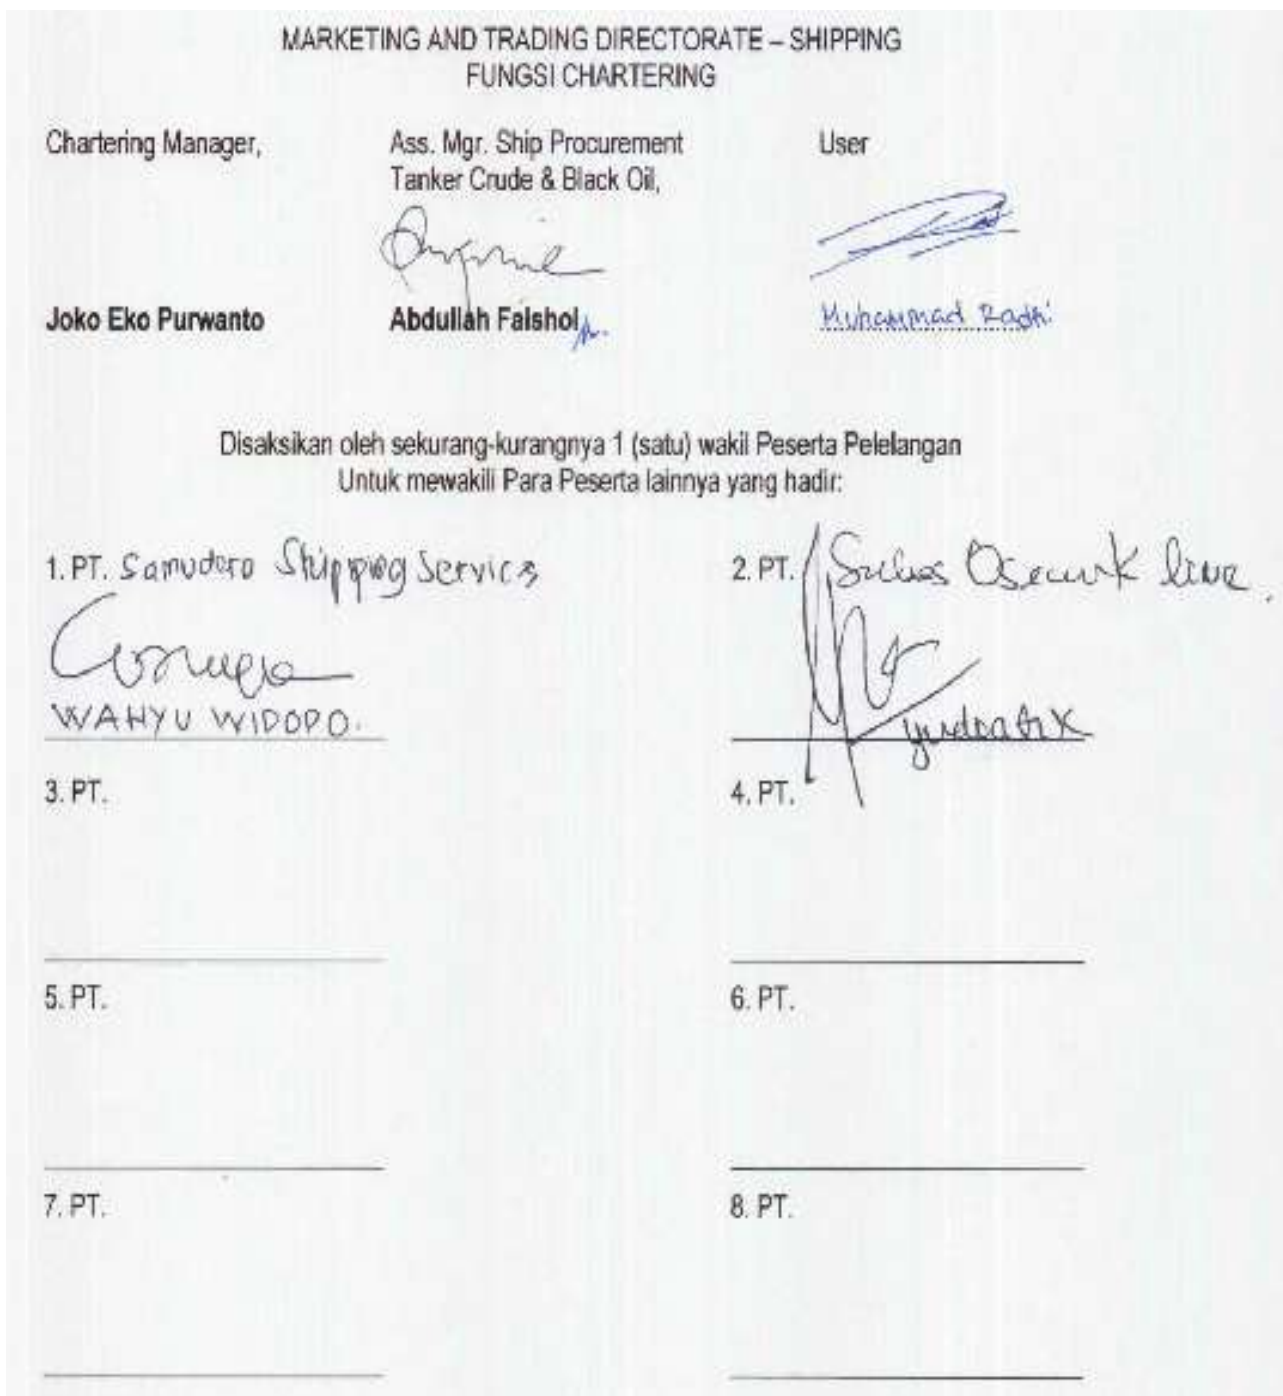 MARKETING AND TRADING DIRECTORATE – SHIPPING
FUNGSI CHARTERING
Chartering Manager,
Ass. Mgr. Ship Procurement
Tanker Crude & Black Oil,
User
Joko Eko Purwanto
Abdullah Faishol
Muhammad Radhi
Disaksikan oleh sekurang-kurangnya 1 (satu) wakil Peserta Pelelangan
Untuk mewakili Para Peserta lainnya yang hadir:
1. PT. Samudera Shipping Services
WAHYU WIDODO.
2. PT. line.
3. PT.
4. PT.
5. PT.
6. PT.
7. PT.
8. PT.